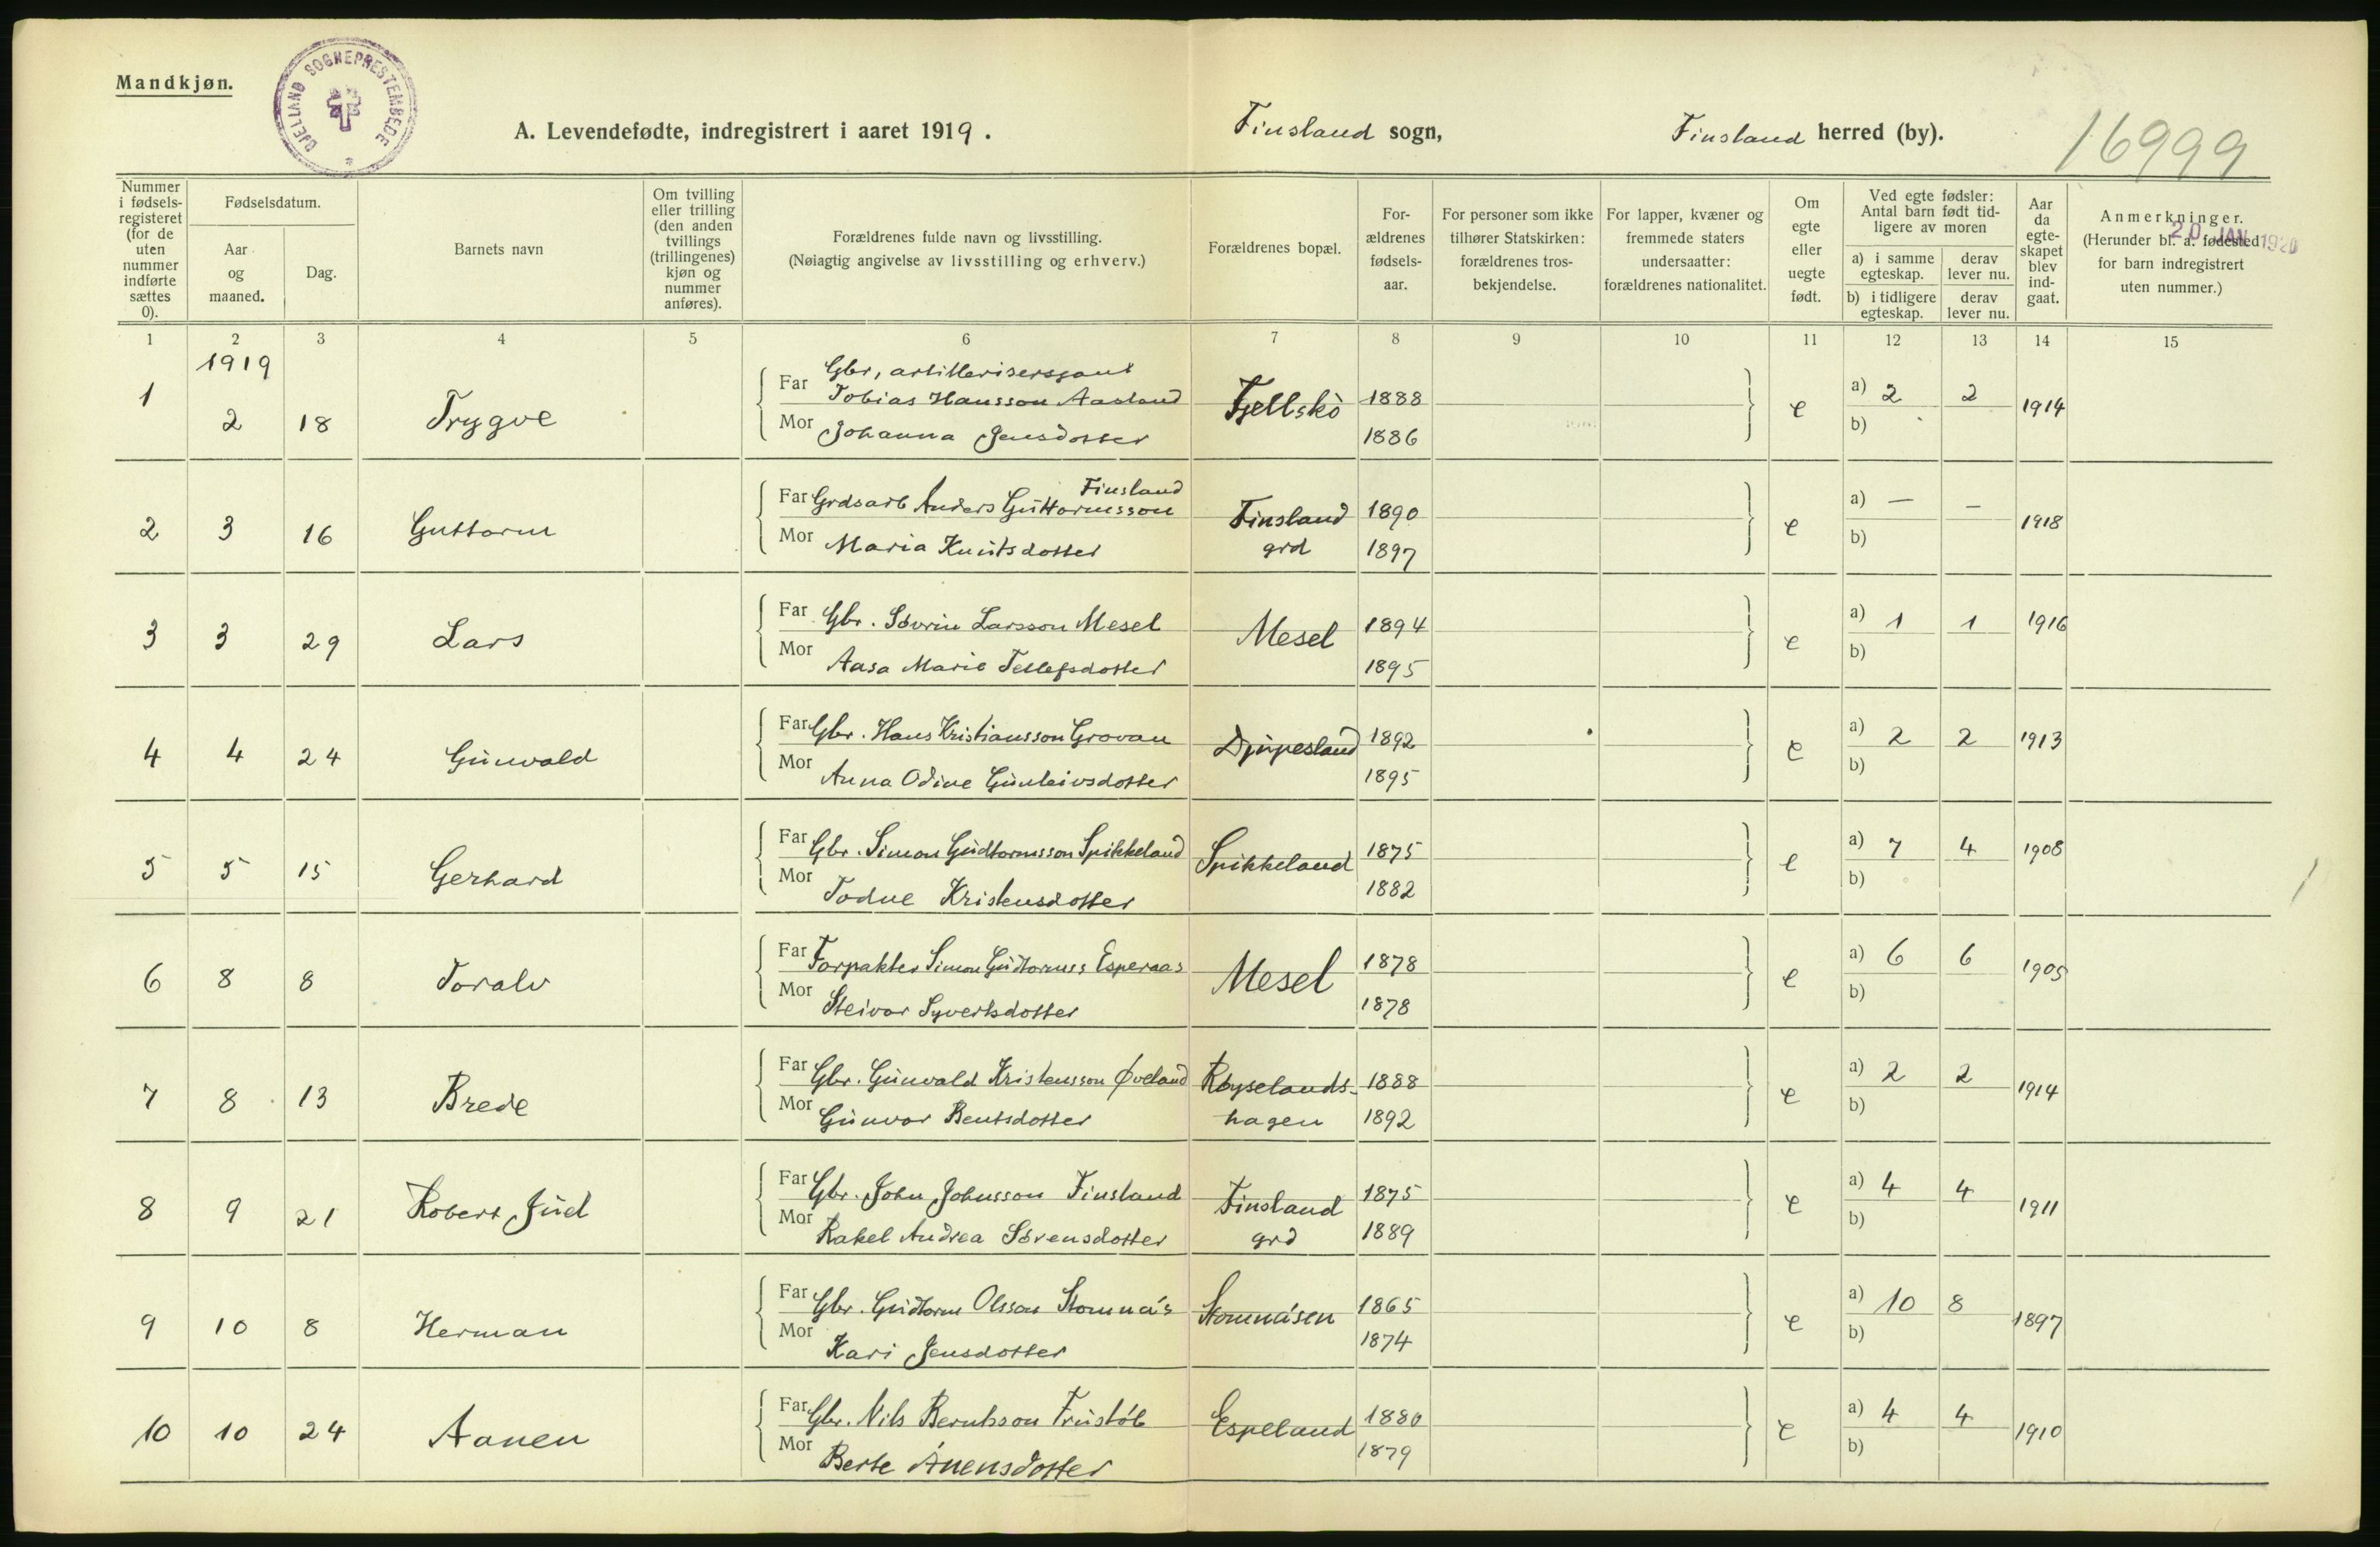 Mandkjøn.
BJELLAND SOGNEPRESTEMBEDE
A. Levendefødte, indregistrert i aaret 1919.
Finsland sogn,
Finsland herred (by).
16999
Nummer i fødsels-registeret (for de uten nummer indførte sættes 0).
Fødselsdatum.
Aar og maaned.
Dag.
Barnets navn
Om tvilling eller trilling (den anden tvillings (trillingenes) kjøn og nummer anføres).
Forældrenes fulde navn og livsstilling.
(Nøiagtig angivelse av livsstilling og erhverv.)
Forældrenes bopæl.
For-ældrenes fødsels-aar.
For personer som ikke tilhører Statskirken: forældrenes tros-bekjendelse.
For lapper, kvæner og fremmede staters undersaatter: forældrenes nationalitet.
Om egte eller uegte født.
Ved egte fødsler: Antal barn født tid-ligere av moren
a) i samme egteskap.
derav lever nu.
b) i tidligere egteskap.
derav lever nu.
Aar da egte-skapet blev ind-gaat.
Anmerkninger.
(Herunder bl. a. fødested for barn indregistrert uten nummer.)
20 JAN. 1920
1 2 3 4 5 6 7 8 9 10 11 12 13 14 15
1919
1 2 18 Trygve
Far Gbr, artillerisersjant
Tobias Hansson Aasland Fjellskò 1888
Mor Johanna Jensdotter 1886
e a) 2 2 1914
b)
2 3 16 Guttorm
Far Grdsarb Anders Guttormsson Finsland
Finsland grd 1890
Mor Maria Knutsdotter 1897
e a) — — 1918
b)
3 3 29 Lars
Far Gbr. Sòvrin Larsson Mesel Mesel 1894
Mor Aasa Marie Tellefsdotter 1895
e a) 1 1 1916
b)
4 4 24 Gunvald
Far Gbr. Hans Kristiansson Grovan Djupesland 1892
Mor Anna Odine Gunleivsdotter 1895
e a) 2 2 1913
b)
5 5 15 Gerhard
Far Gbr. Simon Gudtormsson Spikkeland Spikkeland 1875
Mor Todne Kristensdotter 1882
e a) 7 4 1908
b)
6 8 8 Toralv
Far Forpakter Simon Gudtormss Esperaas Mesel 1878
Mor Steivor Syvertsdotter 1878
e a) 6 6 1905
b)
7 8 13 Brede
Far Gbr. Gunvald Kristensson Øveland Röyselands- 1888
Mor Gunvor Bentsdotter hagen 1892
e a) 2 2 1914
b)
8 9 21 Robert Juel
Far Gbr. John Johnsson Finsland Finsland 1875
Mor Rakel Andrea Sòrensdotter grd 1889
e a) 4 4 1911
b)
9 10 8 Herman
Far Gbr. Gudtorm Olsson Stomnås Stomnåsen 1865
Mor Kari Jensdotter 1874
e a) 10 8 1897
b)
10 10 24 Aanen
Far Gbr. Nils Berntsson Frustòl Espeland 1880
Mor Berte Ånensdotter 1879
e a) 4 4 1910
b)